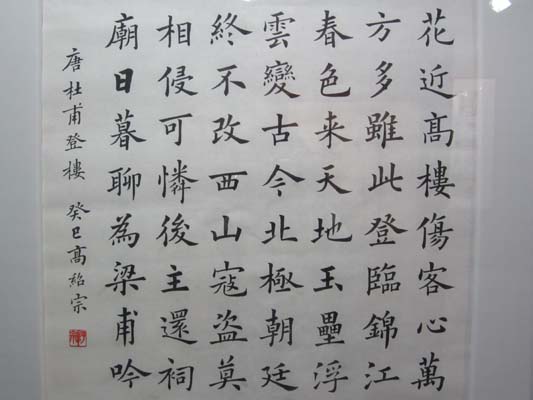 花近髙樓傷客心萬
方多雖此登臨錦江
春色来天地玉壘浮
雲變古今北極朝廷
終不改西山寇盜莫
相侵可憐後主還祠
廟日暮聊為梁甫吟
唐杜甫登樓 癸巳髙紹宗